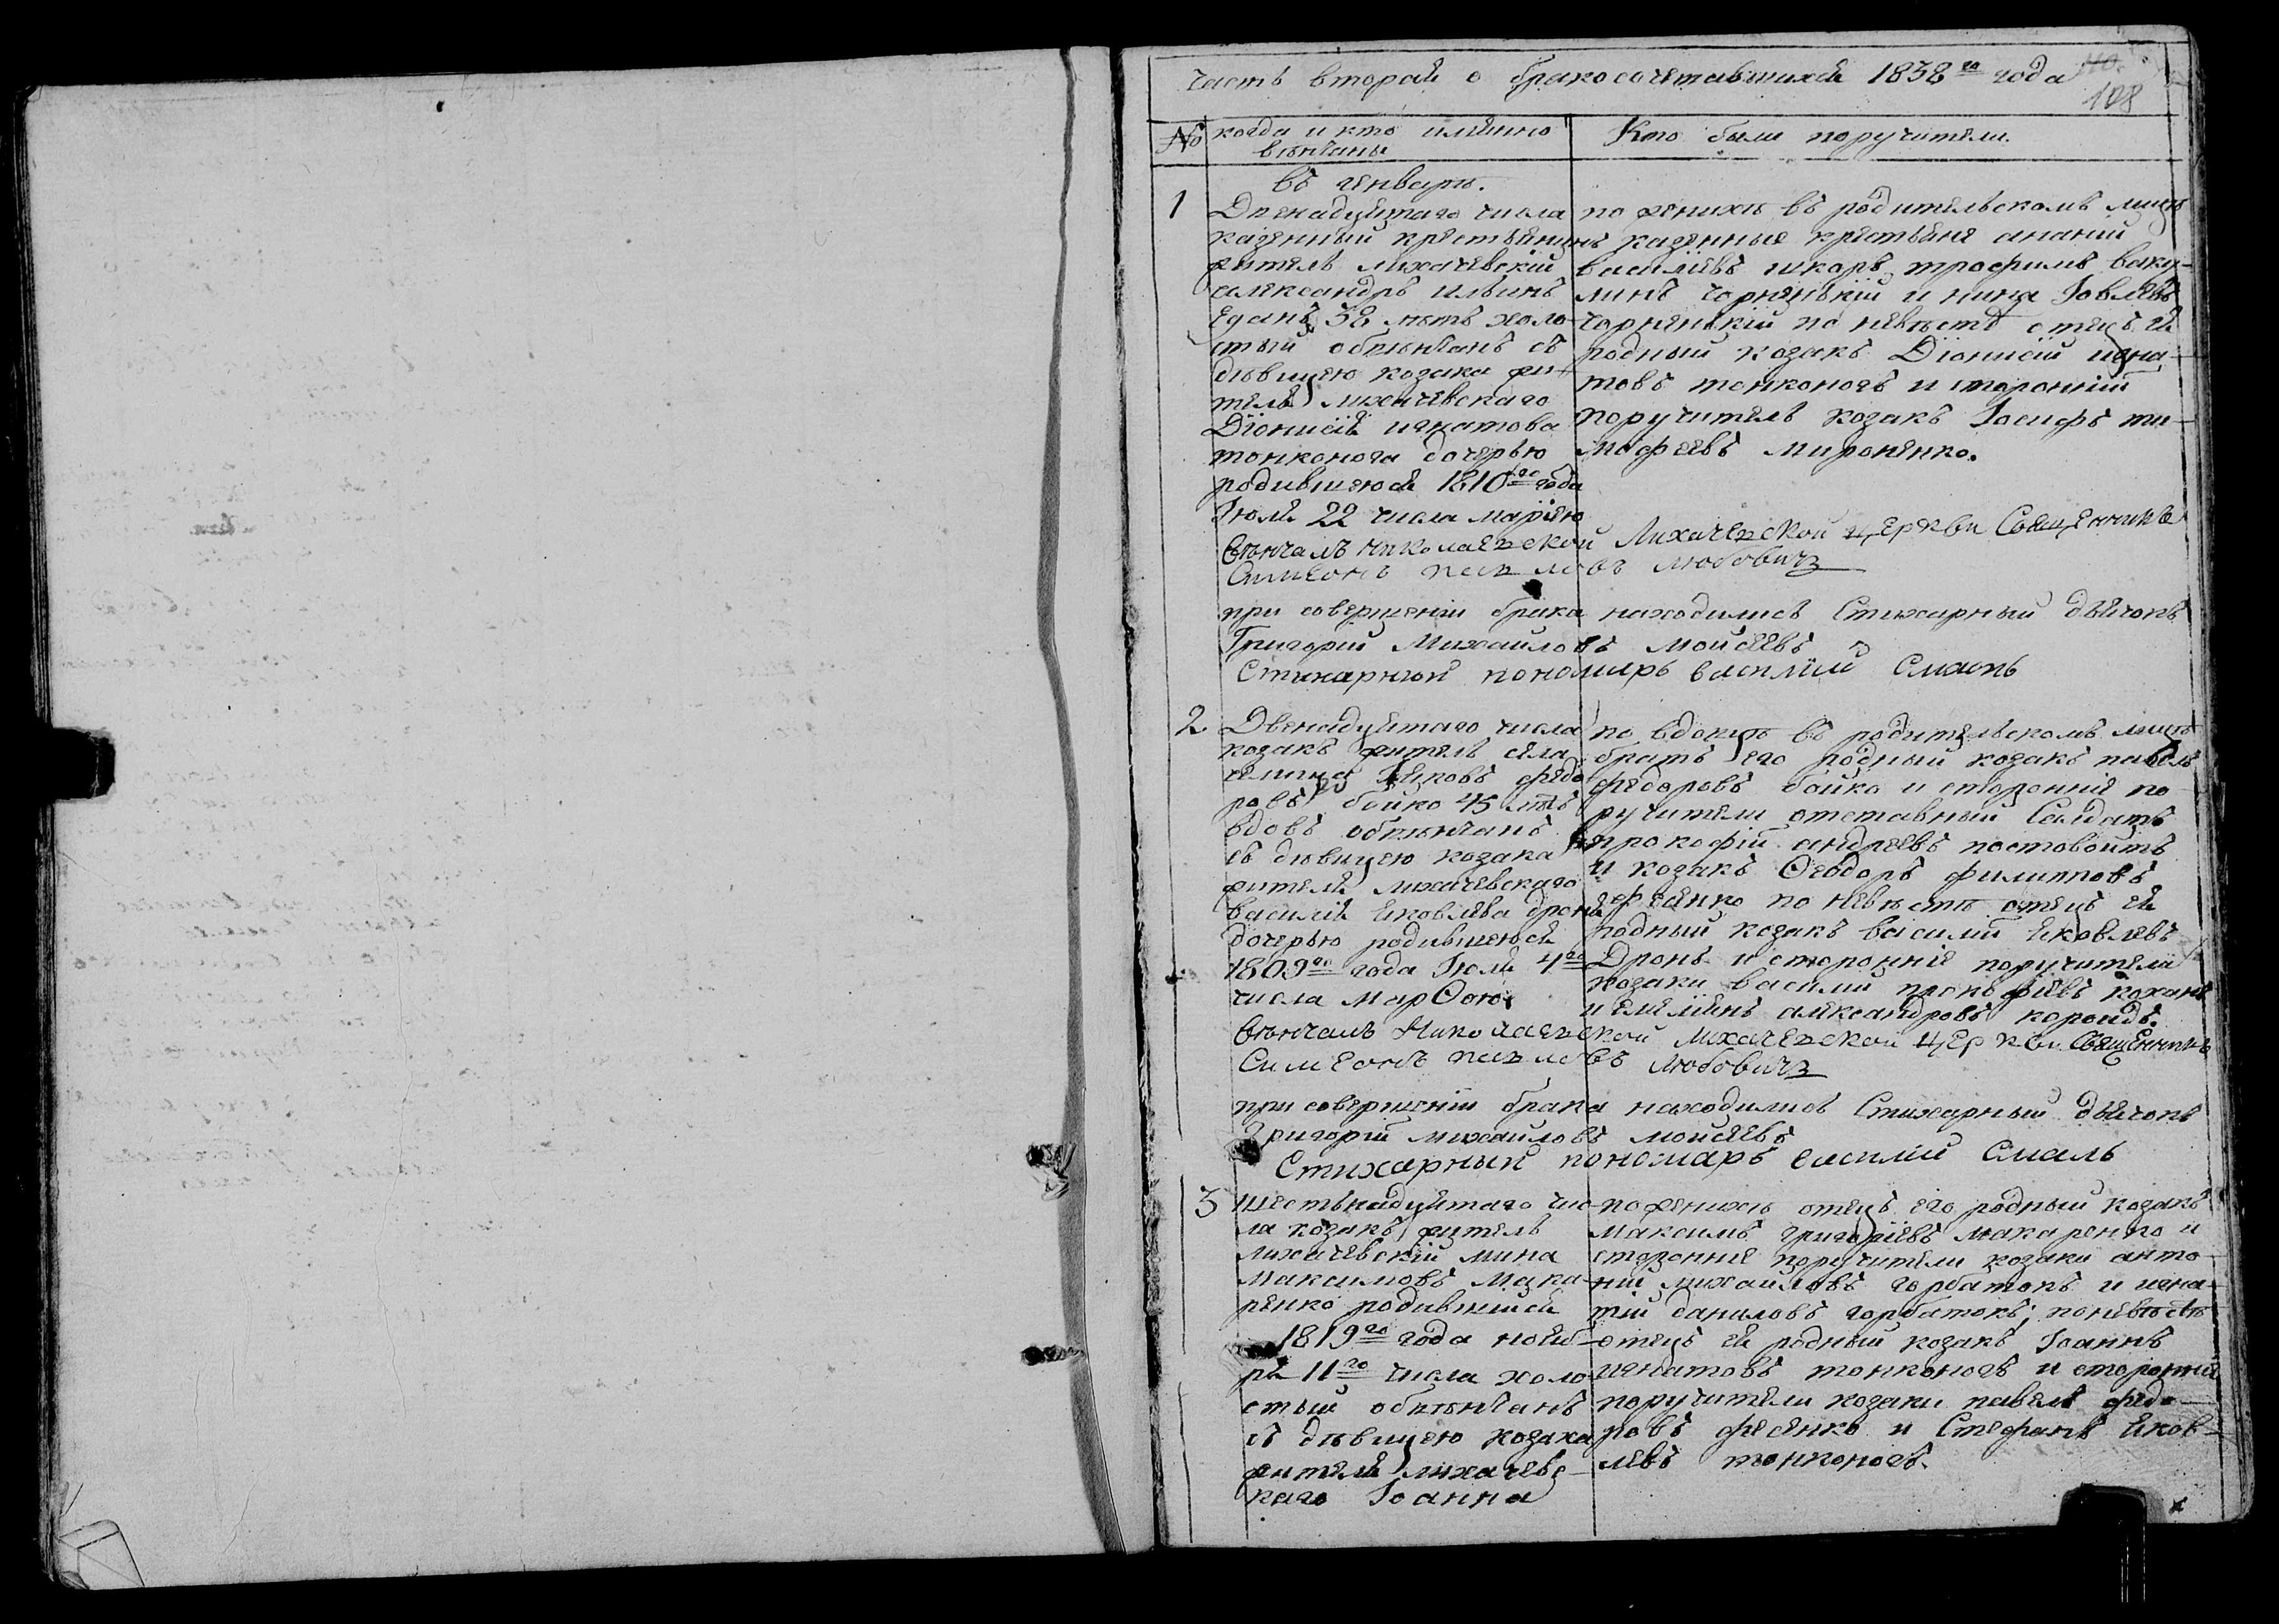 часть вторая о бракосочетавшихся 1838го года
110.
108
№
когда и кто имянно
вѣнчаны
Кто были поручители.
въ генварѣ.
1
Двенадцятаго числа
казенный крестьянинъ
житель лихачевскій
александръ ильинъ
38 лѣтъ холо-
стый обвѣнчанъ съ
дѣвицею козака жи-
теля лихачевскаго
Діонисія игнатова
тонконога дочерью
родившеюся 1810го года
Іюля 22 числа маріею
по жениху въ родительскомъ мѣстѣ
казенные крестьяне ананій
василіевъ шкаръ, трофимъ ваку-
линъ чорненкій и Іовлевъ
чорненкій по невѣстѣ отецъ ея
родный козакъ Діонисій игна-
товъ тонконогъ и сторонній
поручитель козакъ Іосифъ ти-
мофеевъ мироненко.
вѣнчалъ николаевской Лихачевской церкви Священникъ
Симеонъ павловъ любовичъ
при совершеніи брака находились Стихарный дьячокъ
Григорій Михайловъ мойсеевъ
Стихарный пономарь василій Смаль
2
Двенадцятаго числа
козакъ житель села
яковъ федо
ровъ бойко 45 лѣтъ
вдовъ обвѣнчанъ
съ дѣвицею козака
жителя лихачевскаго
василія яковлева дроня
дочерью родившеюся
1809го года Іюля 4го
числа марѳою
по вдовцѣ въ родительскомъ мѣстѣ
братъ его родный козакъ павелъ
федоровъ бойко и сторонніе по-
ручители отставный Салдатъ
прокофій андреевъ постовойтъ
и козакъ Ѳеодоръ филипповъ
фесенко по невѣстѣ отецъ ея
родный козакъ василій яковлевъ
Дронь и сторонніе поручители
козаки василій прокофіевъ коханъ
и емеліянъ александровъ коропдъ.
вѣнчалъ Николаевской Лихачевской церкви Священникъ
Симеонъ павловъ любовичъ
при совершеніи брака находились Стихарный дьячокъ
Григорій михайловъ мойсеевъ
Стихарный пономаръ василій Смаль
3
шестьнадцятаго чис-
ла козакъ житель
лихачевскій мина
максимовъ мака-
ренко родившійся
1819го года нояб-
ря 11го числа холо
стый обвѣнчанъ
съ дѣвицею козака
жителя лихачевс-
каго Іоанна
по жениху отецъ его родный козакъ
максимъ григоріевъ макаренко и
сторонніе поручители козаки анто-
ній михайловъ горбатокъ и игна-
тій даниловъ горбатокъ, по невѣстѣ
отецъ ея родный козакъ Іоаннъ
игнатовъ тонконогъ и сторонніе
поручители козаки павелъ федо-
ровъ фесенко и Стефанъ яков-
левъ тонконогъ.